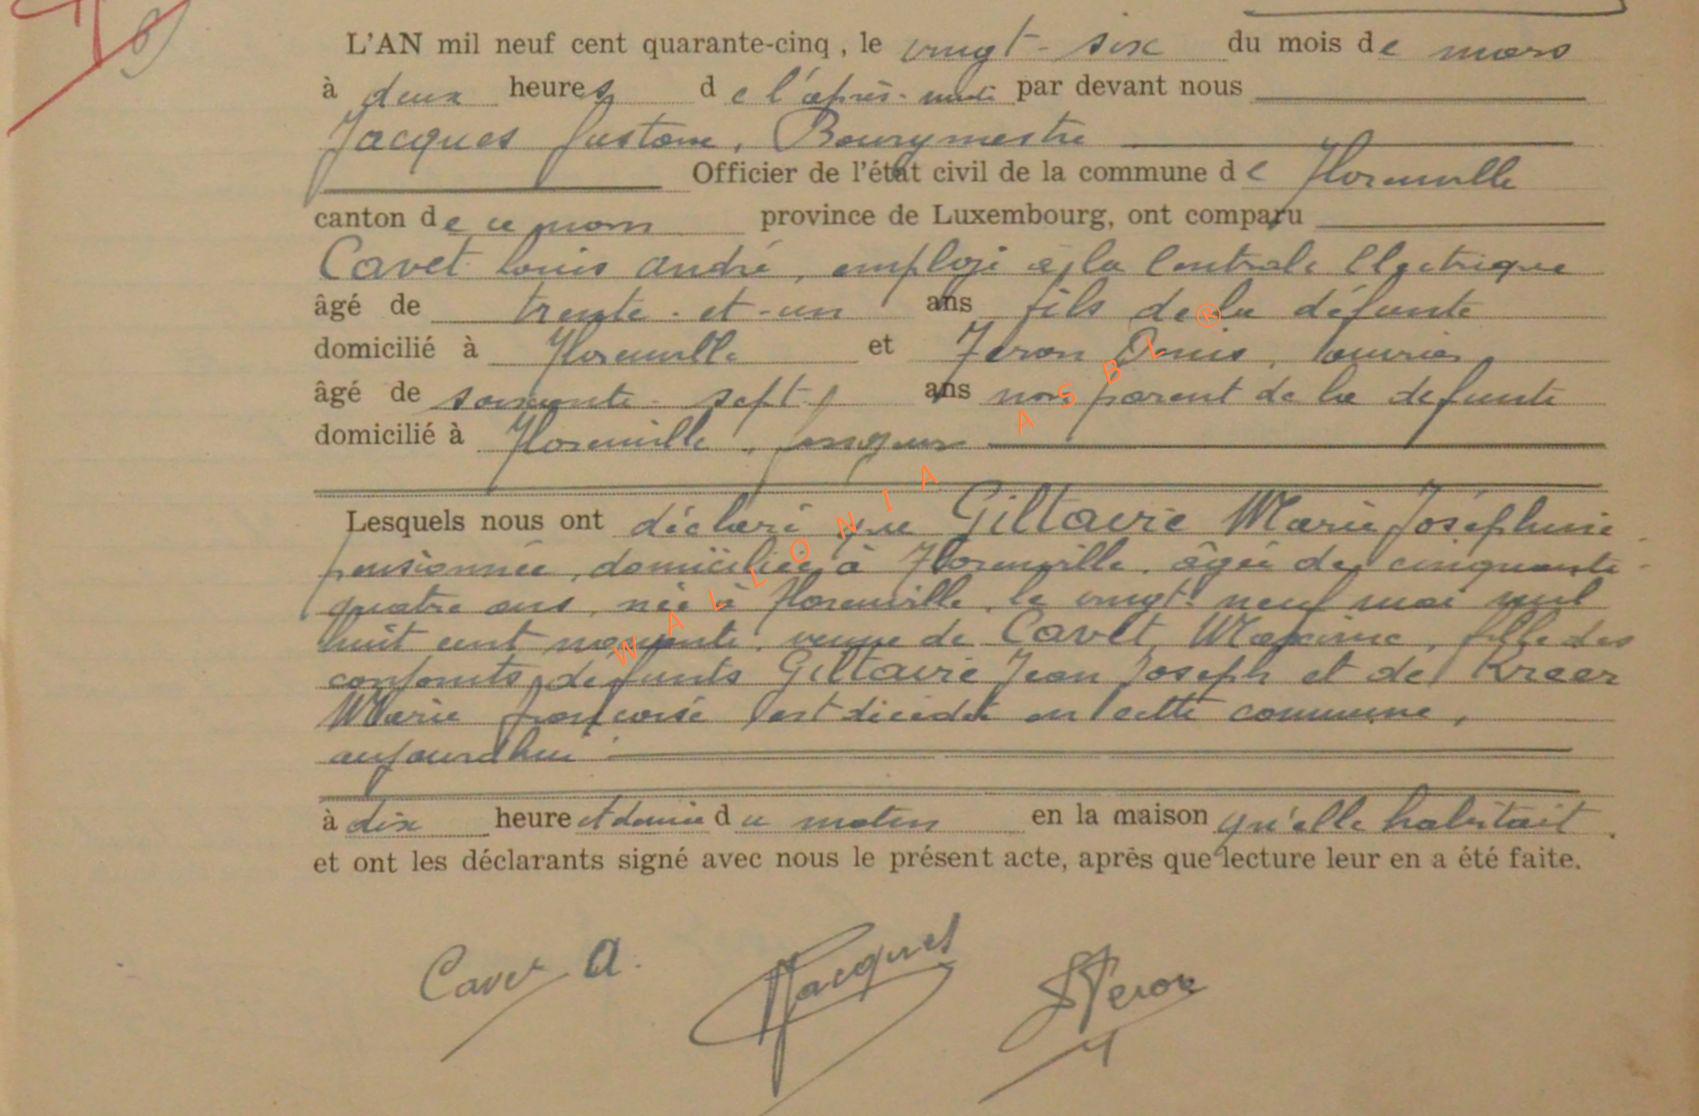 L'AN mil neuf cent quarante-cinq, le vingt-six du mois de mars
à deux heures de l'après-midi par devant nous
Jacques Gustave, Bourgmestre
Officier de l'état civil de la commune de Florenville
canton de ce nom province de Luxembourg, ont comparu
Cavet Louis André, employé à la Centrale Electrique
âgé de trente-et-un ans fils de la défunte
domicilié à Florenville et Feron, ouvrier
âgé de soixante-sept ans non parent de la défunte
domicilié à Florenville
Lesquels nous ont déclaré que Giltaire Marie Joséphine
pensionnée, domiciliée à Florenville, âgée de cinquante-
quatre ans, née à Florenville, le vingt-neuf mai mil
huit cent nonante, veuve de Cavet, Maxime, fille des
conjoints défunts Giltaire Jean Joseph et de Kreer
Marie Françoise est décédée en cette commune,
aujourd'hui
à dix heure et demie du matin en la maison qu'elle habitait.
et ont les déclarants signé avec nous le présent acte, après que lecture leur en a été faite.
Cavet A. Jacques Feron
WALLONIA ASBL ®